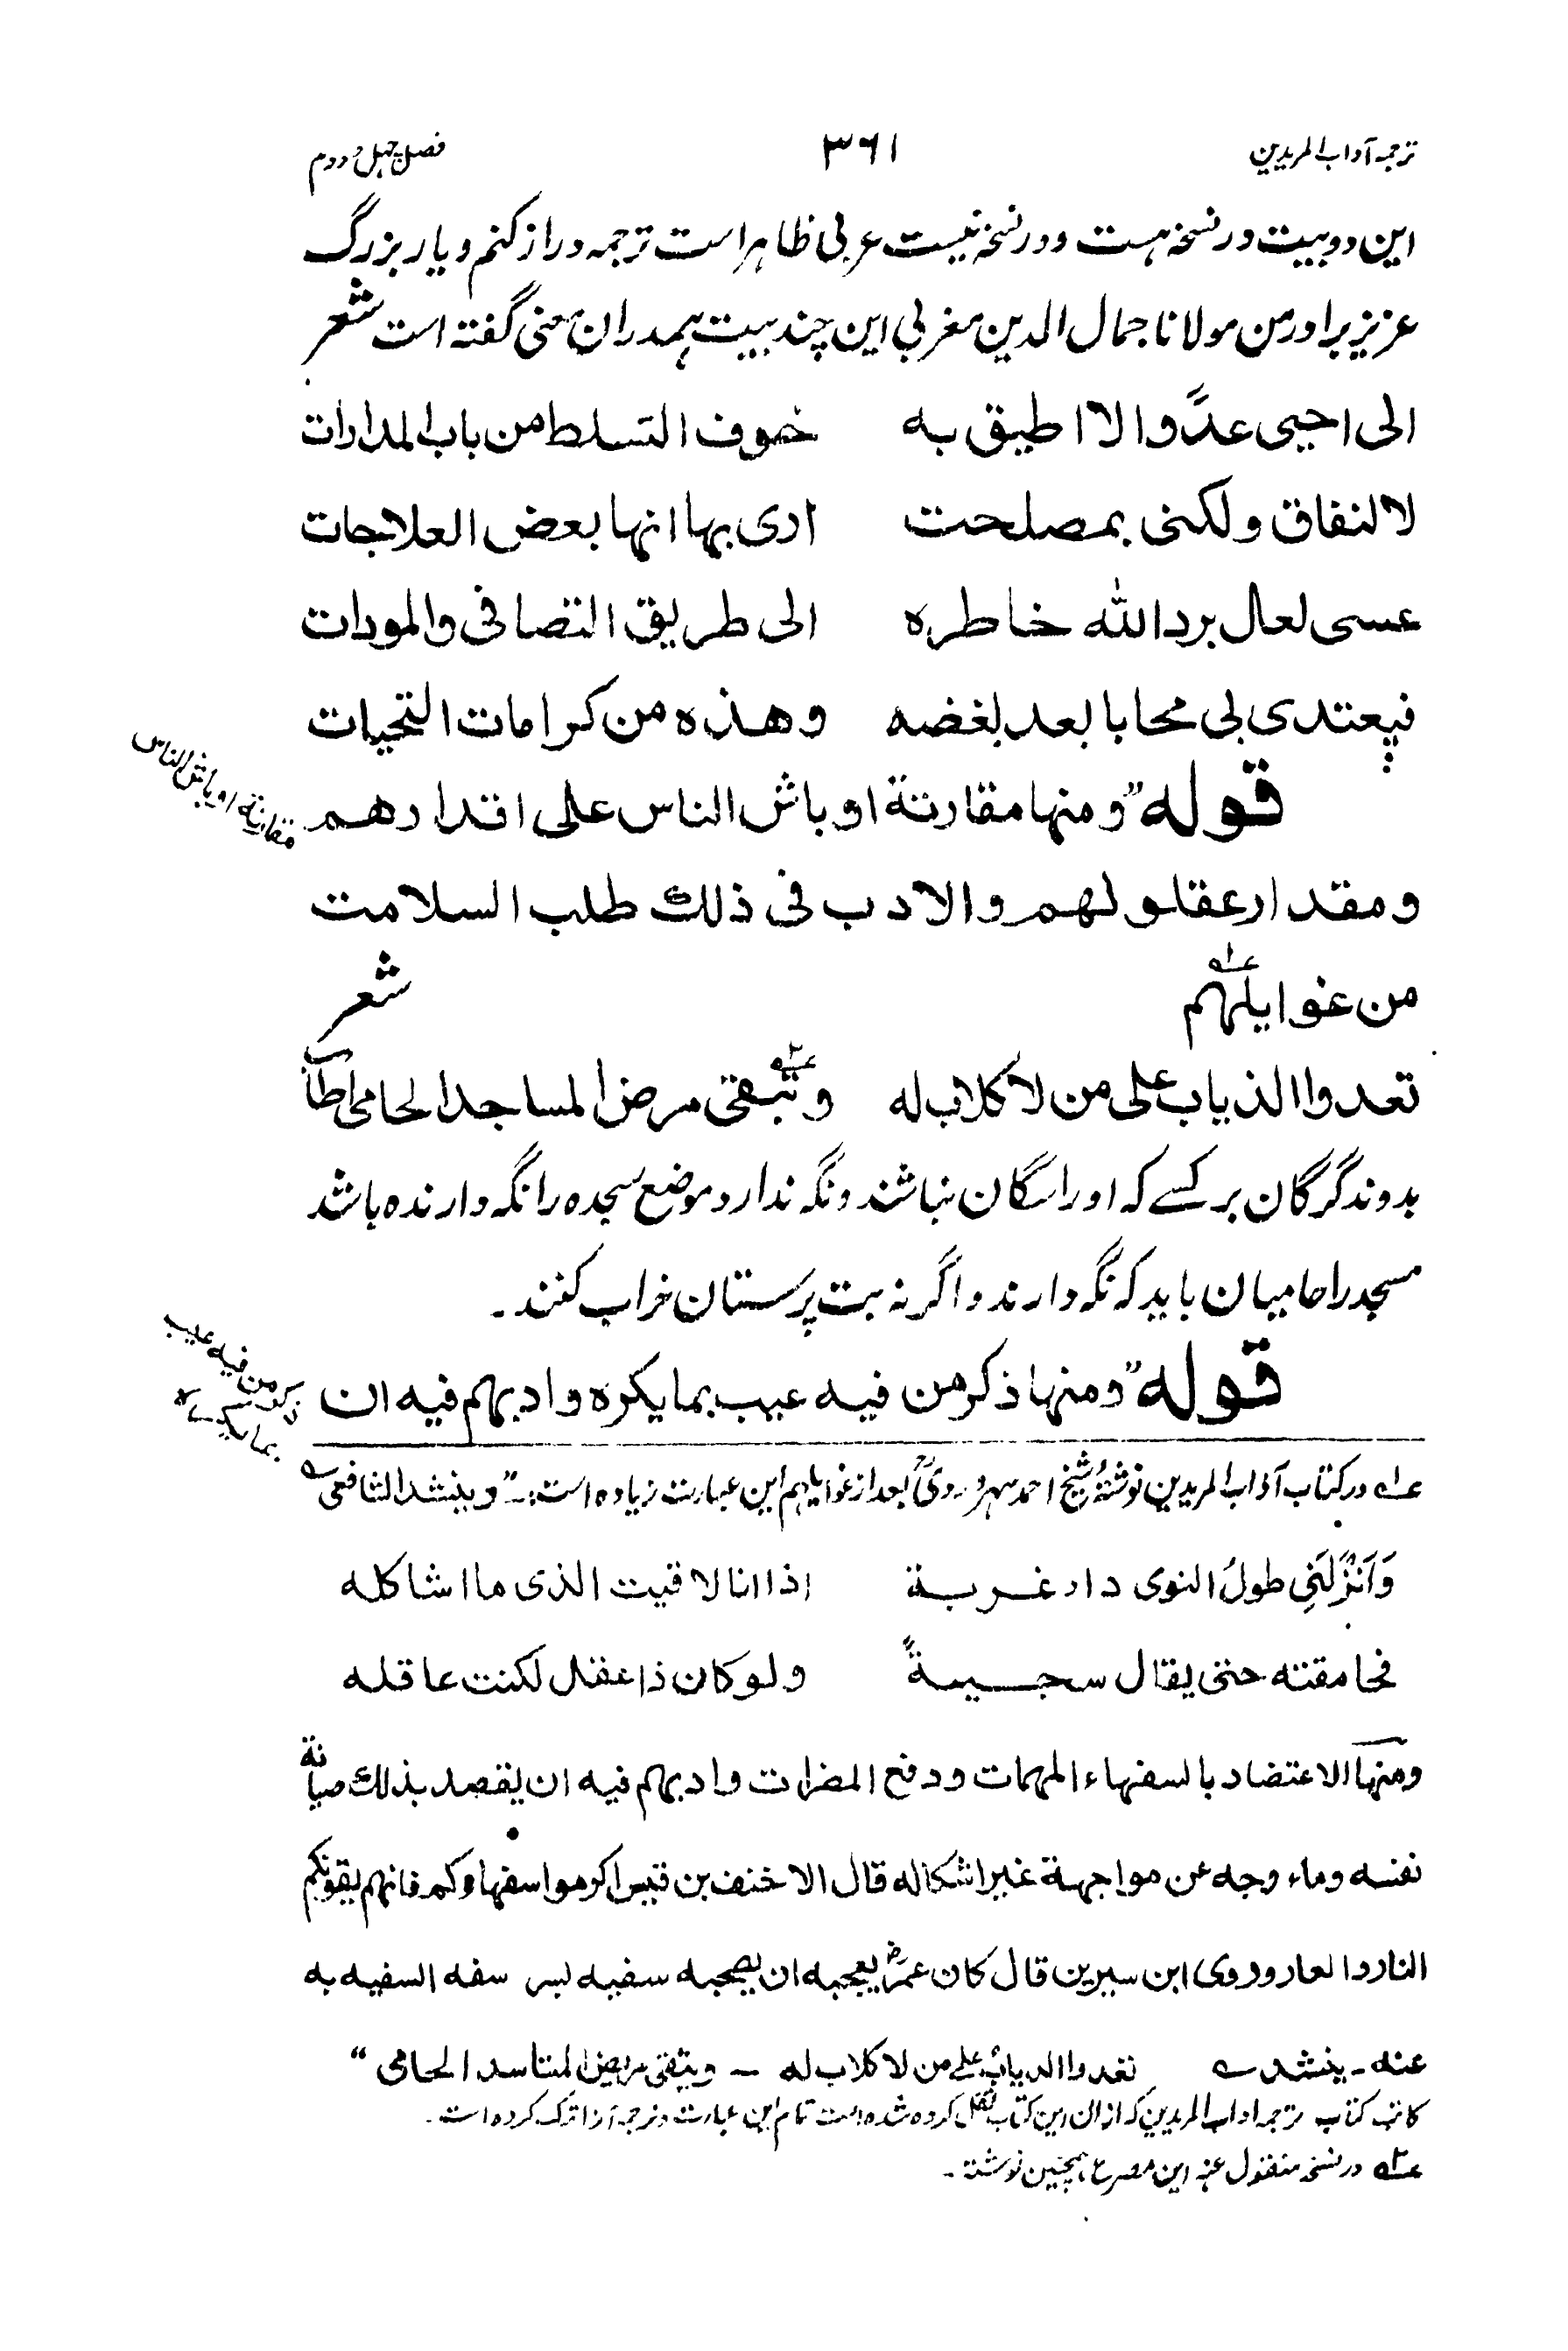 ترجمہ آداب المریدین
۳۶۱
فصل چہل و دوم
این دو بیت در نسخہ ہست و در نسخہ نیست عربی ظاہر است ترجمہ دراز کنم و یار بزرگ
عزیز برادر من مولانا جمال الدین مغربی این چند بیت ہمدران معنی گفتہ است شعر
الی احیی عدّوا لا اطیق به خوف التسلط من باب المدارات
لا لنفاق ولکنی بمصلحت اری بها انها بعض العلاجات
عسی لعال برد الله خاطره الی طریق التصافی والمودات
فیعتدی لی محابا بعد بغضه وهذه من کرامات التحیات
قوله "ومنها مقارنة اوباش الناس علی اقدارهم
مقارنة اوباش الناس
ومقدار عقلولهم والادب فی ذلك طلب السلامت
من غوایلهم عـ۱ـه شعر
تعدوا الذیاب علی من لا کلاب له وتبقی عـ۲ـه مرض المساجد الحامی اطآ
بدوند گرگان بر کسے کہ او را سگان نباشند و نگہ ندارد موضع سجدہ را نگہ دارندہ باشد
مسجد را حامیان باید کہ نگہ دارند و اگر نہ بت پرستان خراب کنند۔
قوله "ومنها ذکر من فیه عیب بما یکره وادبهم فیه ان
ذکر من فیه عیب
بما یکره
عـ۱ـه در کتاب آداب المریدین نوشتۂ شیخ احمد سہروردیؒ بعد از غوایلہم این عبارت زیادہ است:۔ "وینشد الشافعی ؎
وَاَنْزَلَنِی طولُ النوی دار غربة اذا انا لاقیت الذی ما اشاکله
فحامقته حتی یقال سجیةً ولو کان ذا عقل لکنت عاقله
ومنها الاعتضاد بالسفهاء المهمات ودفع المضرات وادبهم فیه ان یقصد بذلك صیانة
نفسه وماء وجه عن مواجهة غیر اشکاله قال الاخنف بن قیس اکرموا سفهاوکم فانهم یقونکم
النار والعار وروی ابن سیرین قال کان عمرؓ یعجبه ان یصحبه سفیه لیر سفه السفیه به
عنه۔ ینشد ؎ تغدوا الدیاب علی من لا کلاب له ــ ویتقی مربض المتاسد الحامی"
کاتب کتاب ترجمہ اداب المریدین کہ ازان این کتاب نقل کردہ شدہ است تمام این عبارت و ترجمہ آنرا ترک کردہ است۔
عـ۲ـه در نسخہ منقول عنہ این مصرع ہمچنین نوشتہ۔